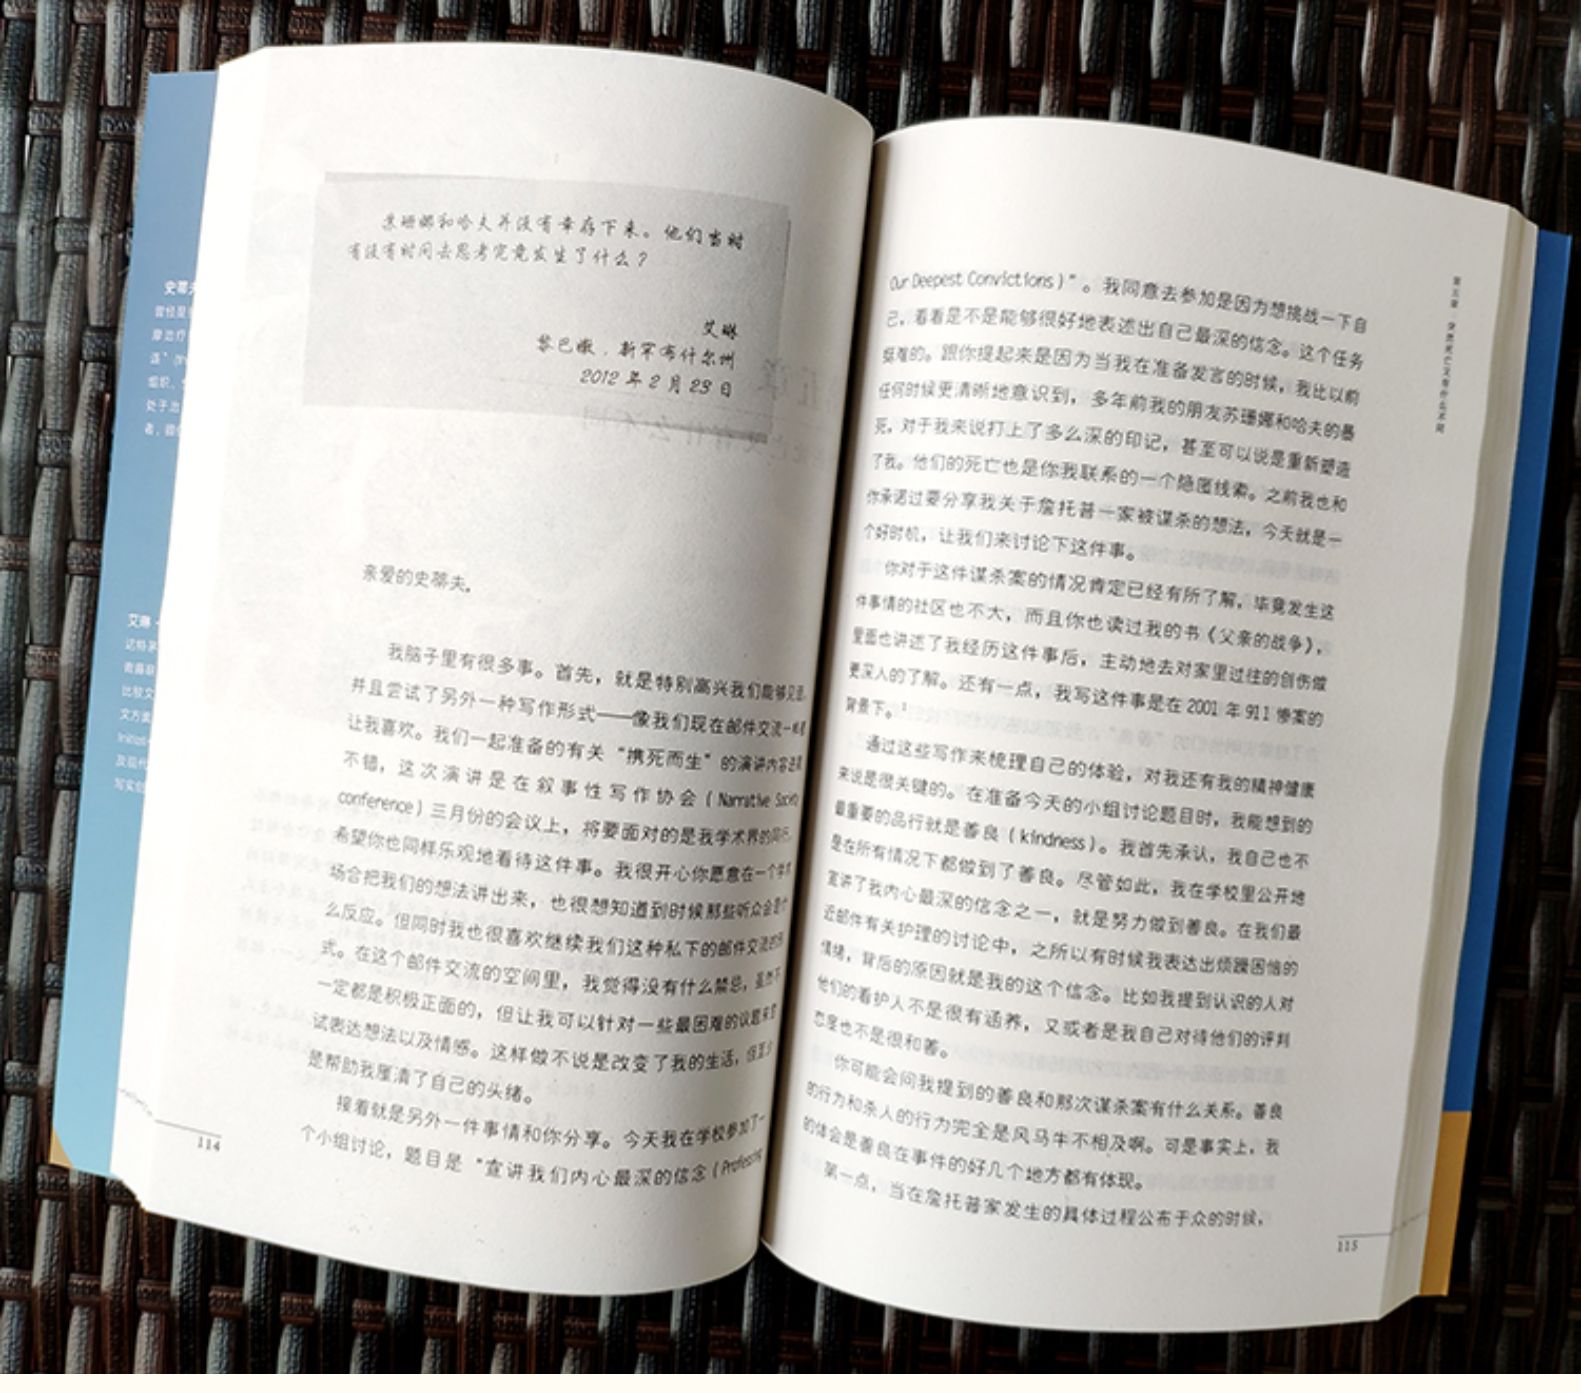 苏珊娜和哈夫并没有幸存下来。他们当时
有没有时间去思考究竟发生了什么？
艾琳
黎巴嫩，新罕布什尔州
2012 年 2 月 23 日
亲爱的史蒂夫，
我脑子里有很多事。首先，就是特别高兴我们能够见面，
并且尝试了另外一种写作形式——像我们现在邮件交流一样
让我喜欢。我们一起准备的有关“携死而生”的演讲内容
不错，这次演讲是在叙事性写作协会（Narrative Society
conference）三月份的会议上，将要面对的是我学术界的同行。
希望你也同样乐观地看待这件事。我很开心你愿意在一个学术
场合把我们的想法讲出来，也很想知道到时候那些听众会是什
么反应。但同时我也很喜欢继续我们这种私下的邮件交流的形
式。在这个邮件交流的空间里，我觉得没有什么禁忌，虽然不
一定都是积极正面的，但让我可以针对一些最困难的议题来尝
试表达想法以及情感。这样做不说是改变了我的生活，但至少
是帮助我厘清了自己的头绪。
接着就是另外一件事情和你分享。今天我在学校参加了一
个小组讨论，题目是“宣讲我们内心最深的信念（Professing
114
第五章 突然死亡又有什么不同
Our Deepest Convictions）”。我同意去参加是因为想挑战一下自
己，看看是不是能够很好地表述出自己最深的信念。这个任务
挺难的。跟你提起来是因为当我在准备发言的时候，我比以前
任何时候更清晰地意识到，多年前我的朋友苏珊娜和哈夫的暴
死，对于我来说打上了多么深的印记，甚至可以说是重新塑造
了我。他们的死亡也是你我联系的一个隐匿线索。之前我也和
你承诺过要分享我关于詹托普一家被谋杀的想法，今天就是一
个好时机，让我们来讨论下这件事。
你对于这件谋杀案的情况肯定已经有所了解，毕竟发生这
件事情的社区也不大，而且你也读过我的书《父亲的战争》，
里面也讲述了我经历这件事后，主动地去对家里过往的创伤做
更深入的了解。还有一点，我写这件事是在 2001 年 911 惨案的
背景下。¹
通过这些写作来梳理自己的体验，对我还有我的精神健康
来说是很关键的。在准备今天的小组讨论题目时，我能想到的
最重要的品行就是善良（kindness）。我首先承认，我自己也不
是在所有情况下都做到了善良。尽管如此，我在学校里公开地
宣讲了我内心最深的信念之一，就是努力做到善良。在我们最
近邮件有关护理的讨论中，之所以有时候我表达出烦躁困恼的
情绪，背后的原因就是我的这个信念。比如我提到认识的人对
他们的看护人不是很有涵养，又或者是我自己对待他们的评判
态度也不是很和善。
你可能会问我提到的善良和那次谋杀案有什么关系。善良
的行为和杀人的行为完全是风马牛不相及啊。可是事实上，我
的体会是善良在事件的好几个地方都有体现。
第一点，当在詹托普家发生的具体过程公布于众的时候，
115